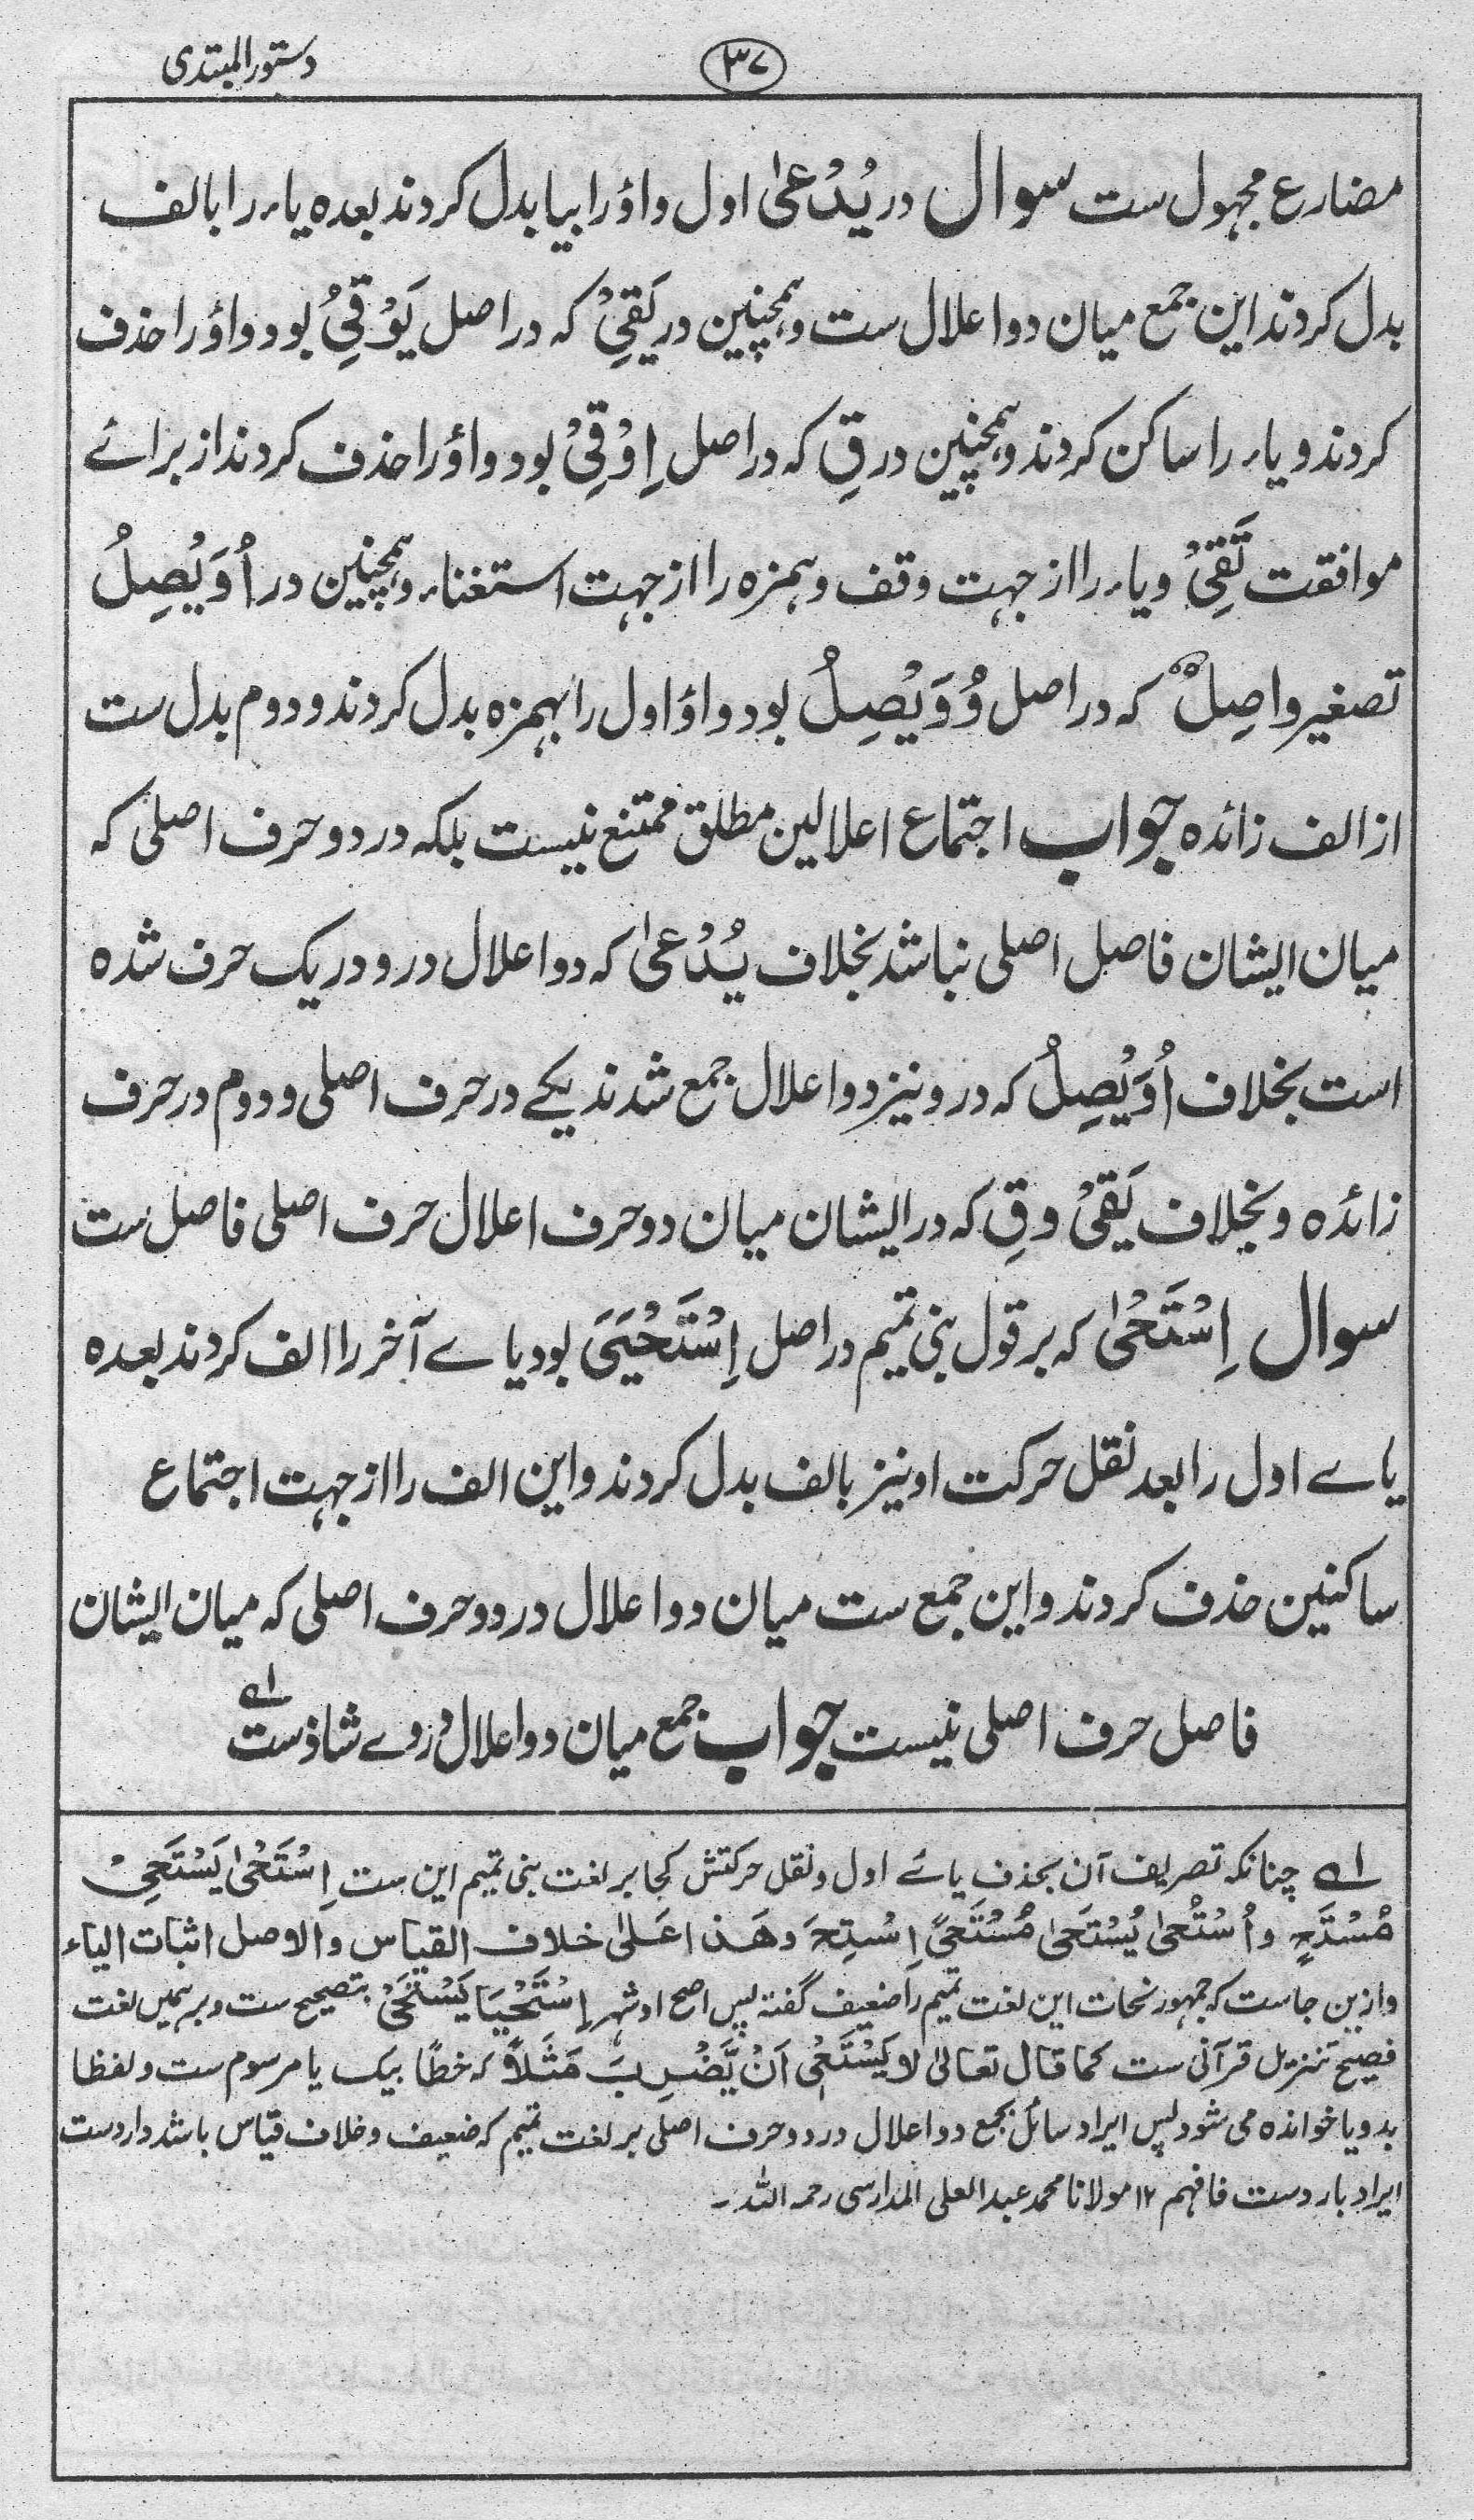 دستور المبتدی
۳۷
مضارع مجہول ست سوال در یُدْعیٰ اول واؤ را بیا بدل کردند بعدہ یاء را بالف
بدل کردند این جمع میان دو اعلال ست و ہمچنین در یَقِیْ کہ در اصل یَوْقِیُ بود واؤ را حذف
کردند و یاء را ساکن کردند و ہمچنین در قِ کہ در اصل اِوْقِیْ بود واؤ را حذف کردند از برائے
موافقت تَقِیْ و یاء را از جہت وقف و ہمزہ را از جہت استغناء و ہمچنین در اُوَیْصِلُ
تصغیر واصِلٌ کہ در اصل وُوَیْصِلُ بود واؤ اول را بہمزہ بدل کردند و دوم بدل ست
از الف زائدہ جواب اجتماع اعلالین مطلق ممتنع نیست بلکہ در دو حرف اصلی کہ
میان ایشان فاصل اصلی نباشد بخلاف یُدْعیٰ کہ دو اعلال درو در یک حرف شدہ
است بخلاف اُوَیْصِلُ کہ درو نیز دو اعلال جمع شدند یکے در حرف اصلی و دوم در حرف
زائدہ و بخلاف یَقِیْ و قِ کہ در ایشان میان دو حرف اعلال حرف اصلی فاصل ست
سوال اِسْتَحْیٰ کہ بر قول بنی تمیم در اصل اِسْتَحْیَیَ بود یاے آخر را الف کردند بعدہ
یاے اول را بعد نقل حرکت او نیز بالف بدل کردند و این الف را از جہت اجتماع
ساکنین حذف کردند و این جمع ست میان دو اعلال در دو حرف اصلی کہ میان ایشان
فاصل حرف اصلی نیست جواب جمع میان دو اعلال دروے شاذ ست ۱ھ
۱ھ چنانکہ تصریف آن بحذف یائے اول و نقل حرکتش بجا بر لغت بنی تمیم این ست اِسْتَحْیٰ یَسْتَحِیْ
مُسْتَحٍ و اُسْتُحیٰ یُسْتَحیٰ مُسْتَحًی اِسْتِحَ و هَذا عَلیٰ خلاف القیاس والاصل اثبات الیاء
و ازین جاست کہ جمہور نحات این لغت تمیم را ضعیف گفتہ پس اصح او شہر اِسْتَحْیَا یَسْتَحْیِیْ بتصحیح ست و بر ہمیں لغت
فصیح تنزیل قرآنی ست کما قال تعالیٰ لا یَسْتَحْیٖ اَنْ یَّضْرِبَ مَثَلاً کہ خطاً بیک یا مرسوم ست و لفظا
بدو یا خواندہ می شود پس ایراد سائل بجمع دو اعلال در دو حرف اصلی بر لغت تمیم کہ ضعیف و خلاف قیاس باشد وارد ست
ایراد بارد ست فافہم ۱۲ مولانا محمد عبد العلی المدارسی رحمہ اللہ ۔